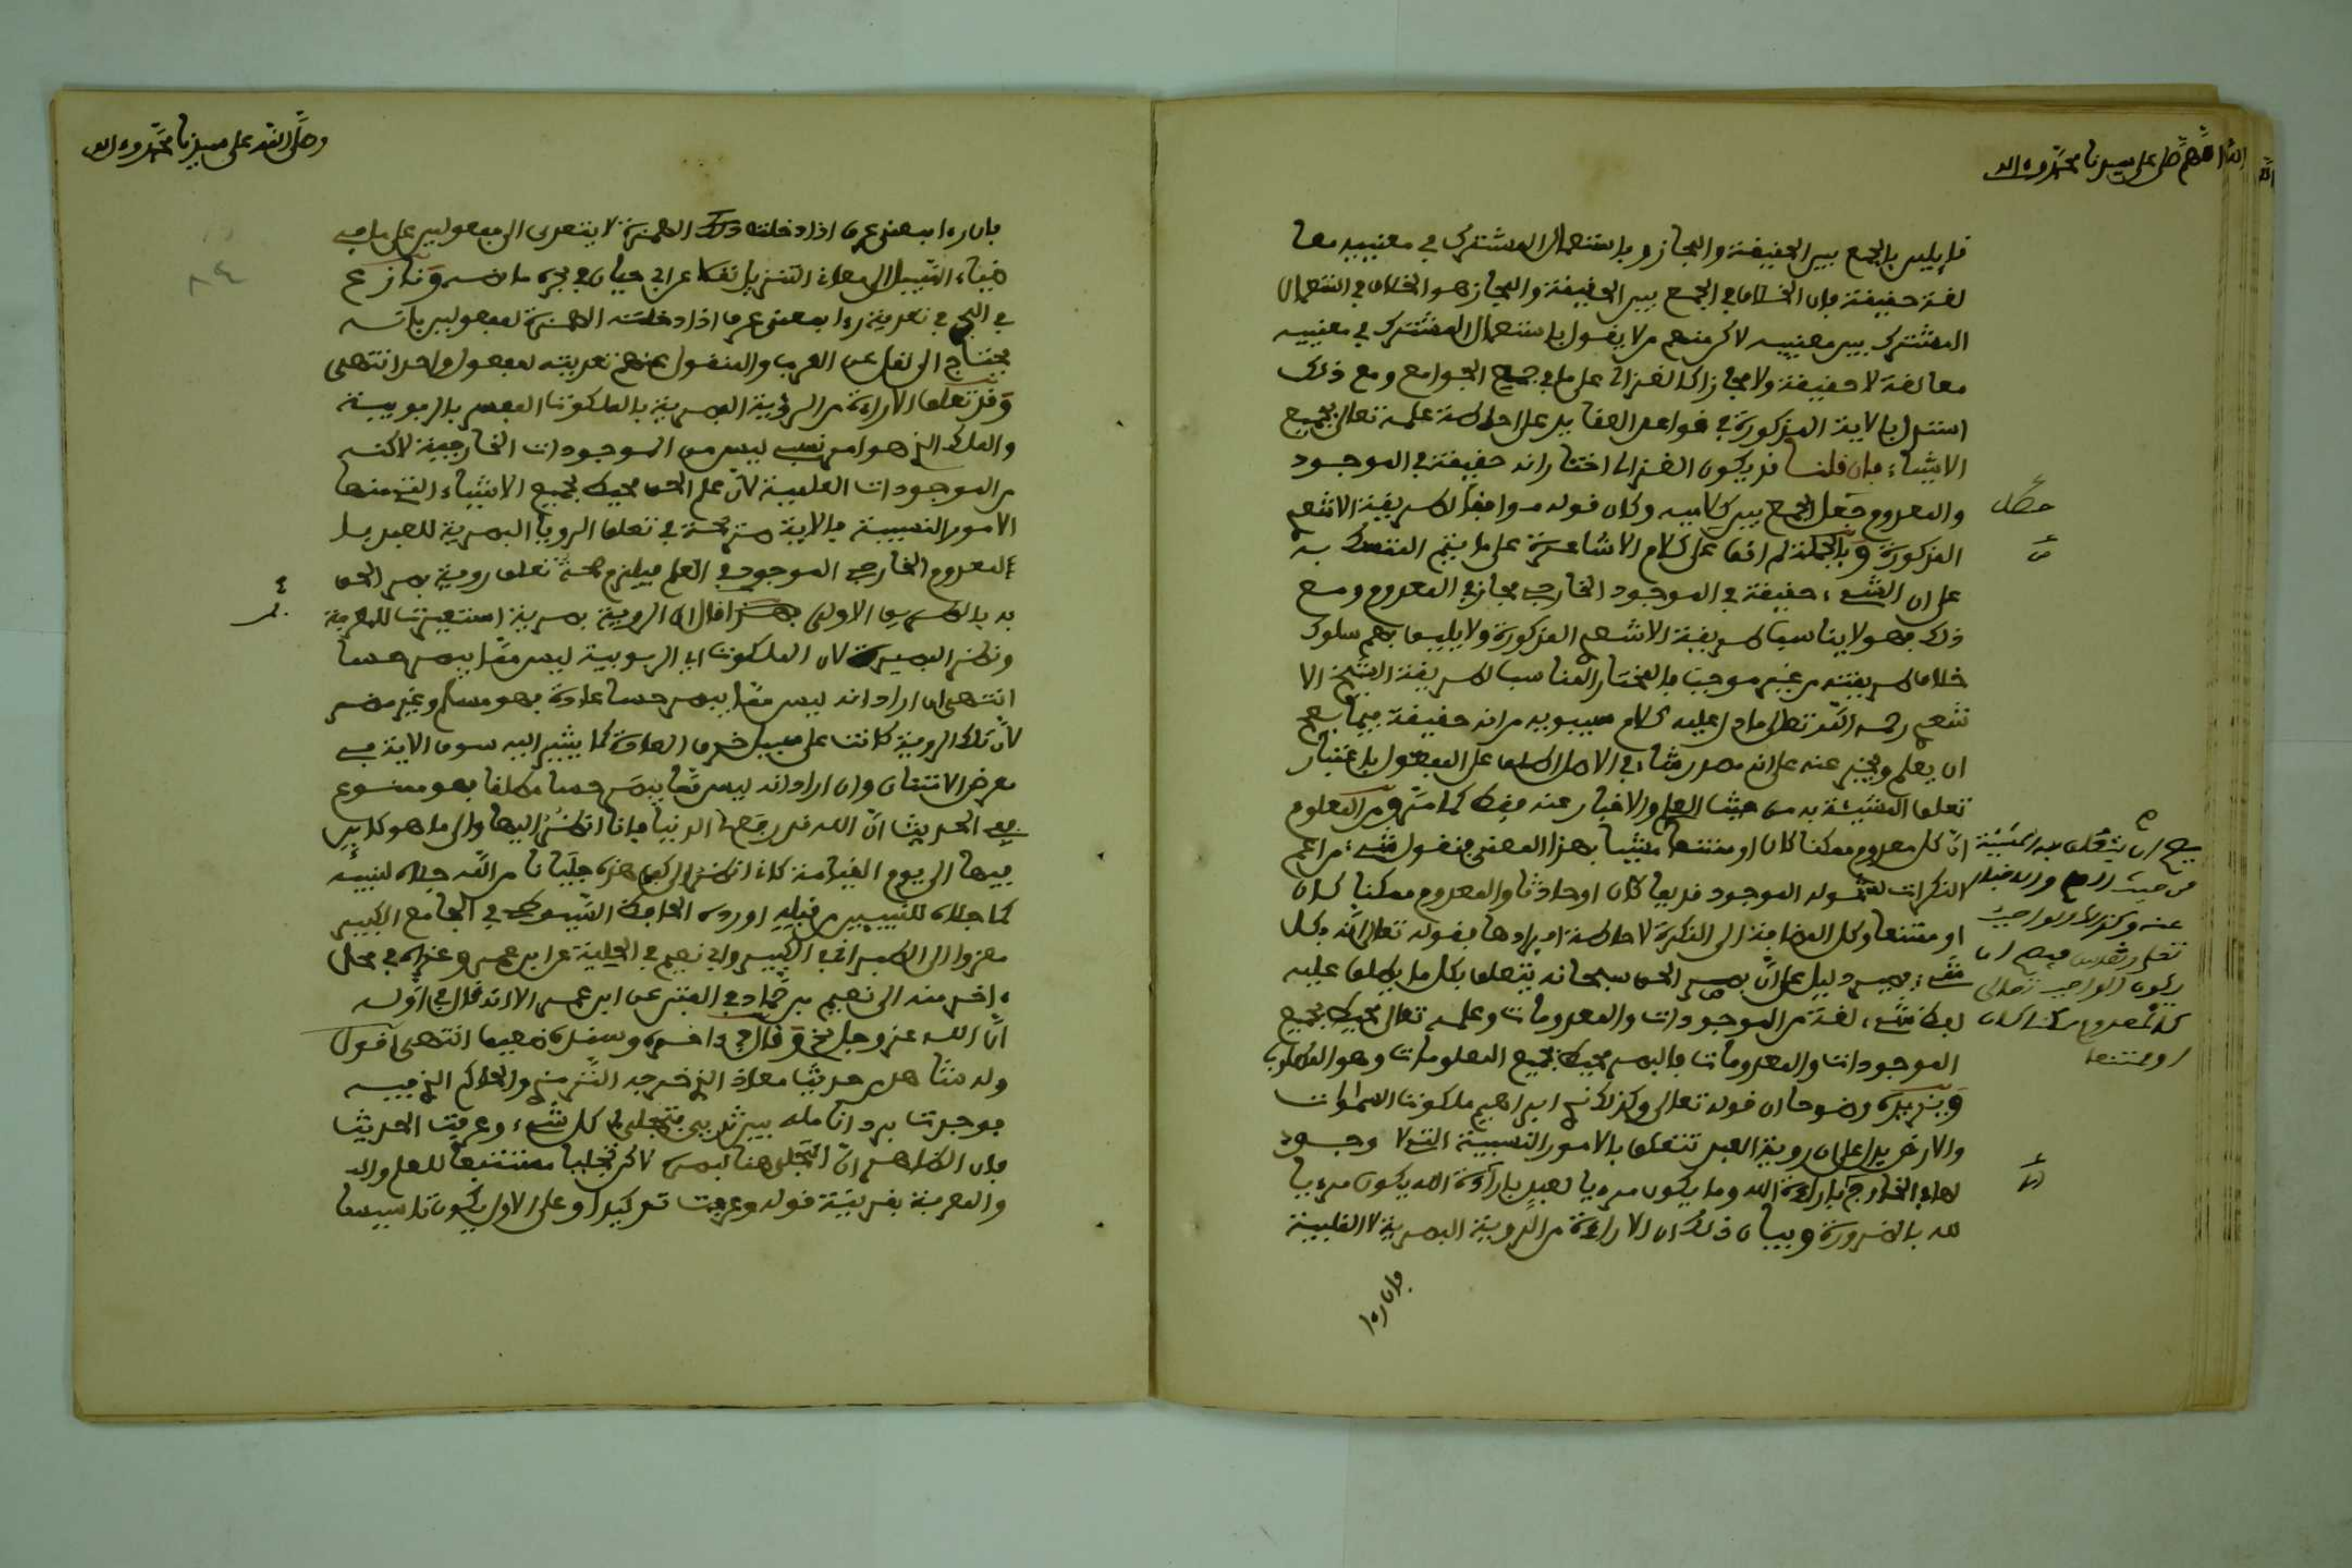 اللهم صل على سيدنا محمد وءاله
قايلين بالجمع بين الحقيقة والمجاز وباستعمال المشترك في معنييه معا
لغة حقيقة فان الخلاف في الجمع بين الحقيقة والمجاز هو الخلاف في استعمال
المشترك بين معنييه لاكن منهم من لا يقول باستعمال المشترك في معنييه
معا لغة لا حقيقة ولا مجازا كالغزالي على ما في جمع الجوامع ومع ذلك
استدل بالاية المذكورة في قواعد العقايد على احاطة علمه تعالى بجميع
الاشياء فان قلنا قد يكون الغزالي اختار انه حقيقة في الموجود
والمعدوم جعل الجمع بين وكان قوله موافقا لطريقة الاشعري
المذكورة وبالجملة لم اقف على كلام الاشاعرة على ما يتم التمسك به
على ان الشيء حقيقة في الموجود الخارجي مجاز في المعدوم ومع
ذلك فهو لا يناسب طريقة الاشعري المذكورة ولا يليق بهم سلوك
خلاف طريقته من غير موجب فالمختار المناسب لطريقة الشيخ الا
شعري رحمه الله تعالى ما دل عليه كلام سيبويه من انه حقيقة فيما يصح
ان يعلم ويخبر عنه على انه مصدر شاء في الاصل اطلق على المفعول باعتبار
تعلق المشيئة به من حيث العلم والاخبار عنه فقط كما مر ومن المعلوم
ان كل معدوم ممكنا كان او ممتنعا شيئا بهذا المعنى فنقول شيء من اعم
النكرات لشموله الموجود قديما كان او حادثا والمعدوم ممكنا كان
او ممتنعا وكل المضافة الى النكرة لاحاطة افرادها فقوله تعالى انه بكل
شيء بصير دليل على ان بصر الحق سبحانه يتعلق بكل ما يطلق عليه
لفظ شيء لغة من الموجودات والمعدومات وعلمه تعالى محيط بجميع
الموجودات والمعدومات فالبصر محيط بجميع المعلومات وهو المطلوب
ويزيده وضوحا ان قوله تعالى وكذلك نري ابراهيم ملكوت السماوات
والارض يدل على ان روية العبد تتعلق بالامور النسبية التي لا وجود
لها في الخارج باراءة الله وما يكون مرءيا لعبد باراءة الله يكون مرءيا
لله بالضرورة وبيان ذلك ان الاراءة من الروية البصرية لا القلبية
فان رءا
يصح ان تتعلق به المشيئة
من حيث العلم والاخبار
عنه وكذلك الواجب
تعلى وتقدس فيصح ان
يكون الواجب تعالى
كالمعدوم ممكنا كان
او ممتنعا
وصلى الله على سيدنا محمد وءاله
فان رءا بمعنى عرف اذا دخلت عليه الهمزة لا يتعدى الى مفعولين على ما في
ضياء السبيل الى معاني التنزيل نقلا عن ابي حيان في بحره ما نصه ونازع
في البحر في تعدية رءا بمعنى عرف اذا دخلته الهمزة لمفعولين بانه
يحتاج الى نقل عن العرب والمنقول عنهم تعديته لمفعول واحد انتهى
وقد تعلق الاراءة من الروية البصرية بالملكوت المفسر بالربوبية
والملك الذي هو امر نسبي ليس من الموجودات الخارجية لاكنه
من الموجودات العلمية لان علم الحق محيط بجميع الاشياء التي منها
الامور النسبية فالاية صريحة في تعلق الرويا البصرية للعبد بـ
المعدوم الخارجي الموجود في العلم فيلزم صحة تعلق روية بصر الحق
به بالطريق الاولى قال ان الروية بصرية استعيرت للمعرفة
ونظر البصيرة لان الملكوت اي الربوبية ليس مما يبصر حسا
انتهى ان اراد انه ليس مما يبصر حسا عادة فهو مسلم وغير مضر
لان تلك الروية كانت على سبيل خرق العادة كما يشير اليه سوق الاية في
معرض الامتنان وان اراد انه ليس مما يبصر حسا مطلقا فهو ممنوع
ففي الحديث ان الله قد رفع لي الدنيا فانا انظر اليها والى ما هو كاين
فيها الى يوم القيامة كانما انظر الى كفي هذه جليانا من الله جلاه لنبيه
كما جلاه للنبيين من قبله اورده الحافظ السيوطي في الجامع الكبير
معزوا الى الطبراني في الكبير وابي نعيم في الحلية عن ابن عمر وعزاه في محل
ءاخر منه الى نعيم بن حماد في الفتن عن ابن عمر الا انه قال في اوله
ان الله عز وجل وقال في ءاخره وسنده ضعيف انتهى اقول
وله شاهد حديث معاذ الذي خرجه الترمذي والحاكم الذي فيه
فوجدت برد انامله بين ثديي فتجلى لي كل شيء وعرفت الحديث
فان الظاهر ان التجلي هنا بصري لاكن تجليا مستتبعا للعلم والـ
والمعرفة بقرينة قوله وعرفت توكيدا وعلى الاول يكون تاسيسا